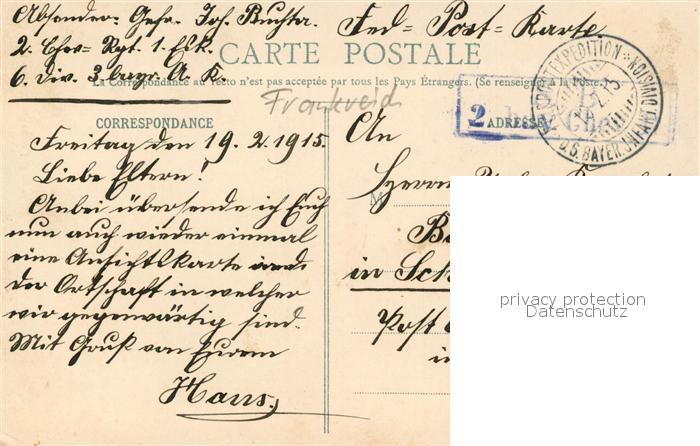 Absender: Gefr. Joh. Buchta.
2. Chev= Rgt. 1. Esk.
6. Div. 3. bayr. A. K.
Fed= Post= Karte.
CARTE POSTALE
La Correspondance au recto n'est pas acceptée par tous les Pays Étrangers. (Se renseigner à la Poste.)
Frankreich
CORRESPONDANCE
Freitag den 19. 2. 1915.
Liebe Eltern!
Anbei übersende ich Euch
nun auch wieder einmal
eine Ansichtskarte
der Ortschaft in welcher
wir gegenwärtig sind.
Mit Gruß von Eurem
Hans.
2
ADRESSE
EXPEDITION
D. 6. BAYER. INFANT. DIVISION
An
Herrn
M
in Sch
Post
privacy protection
Datenschutz